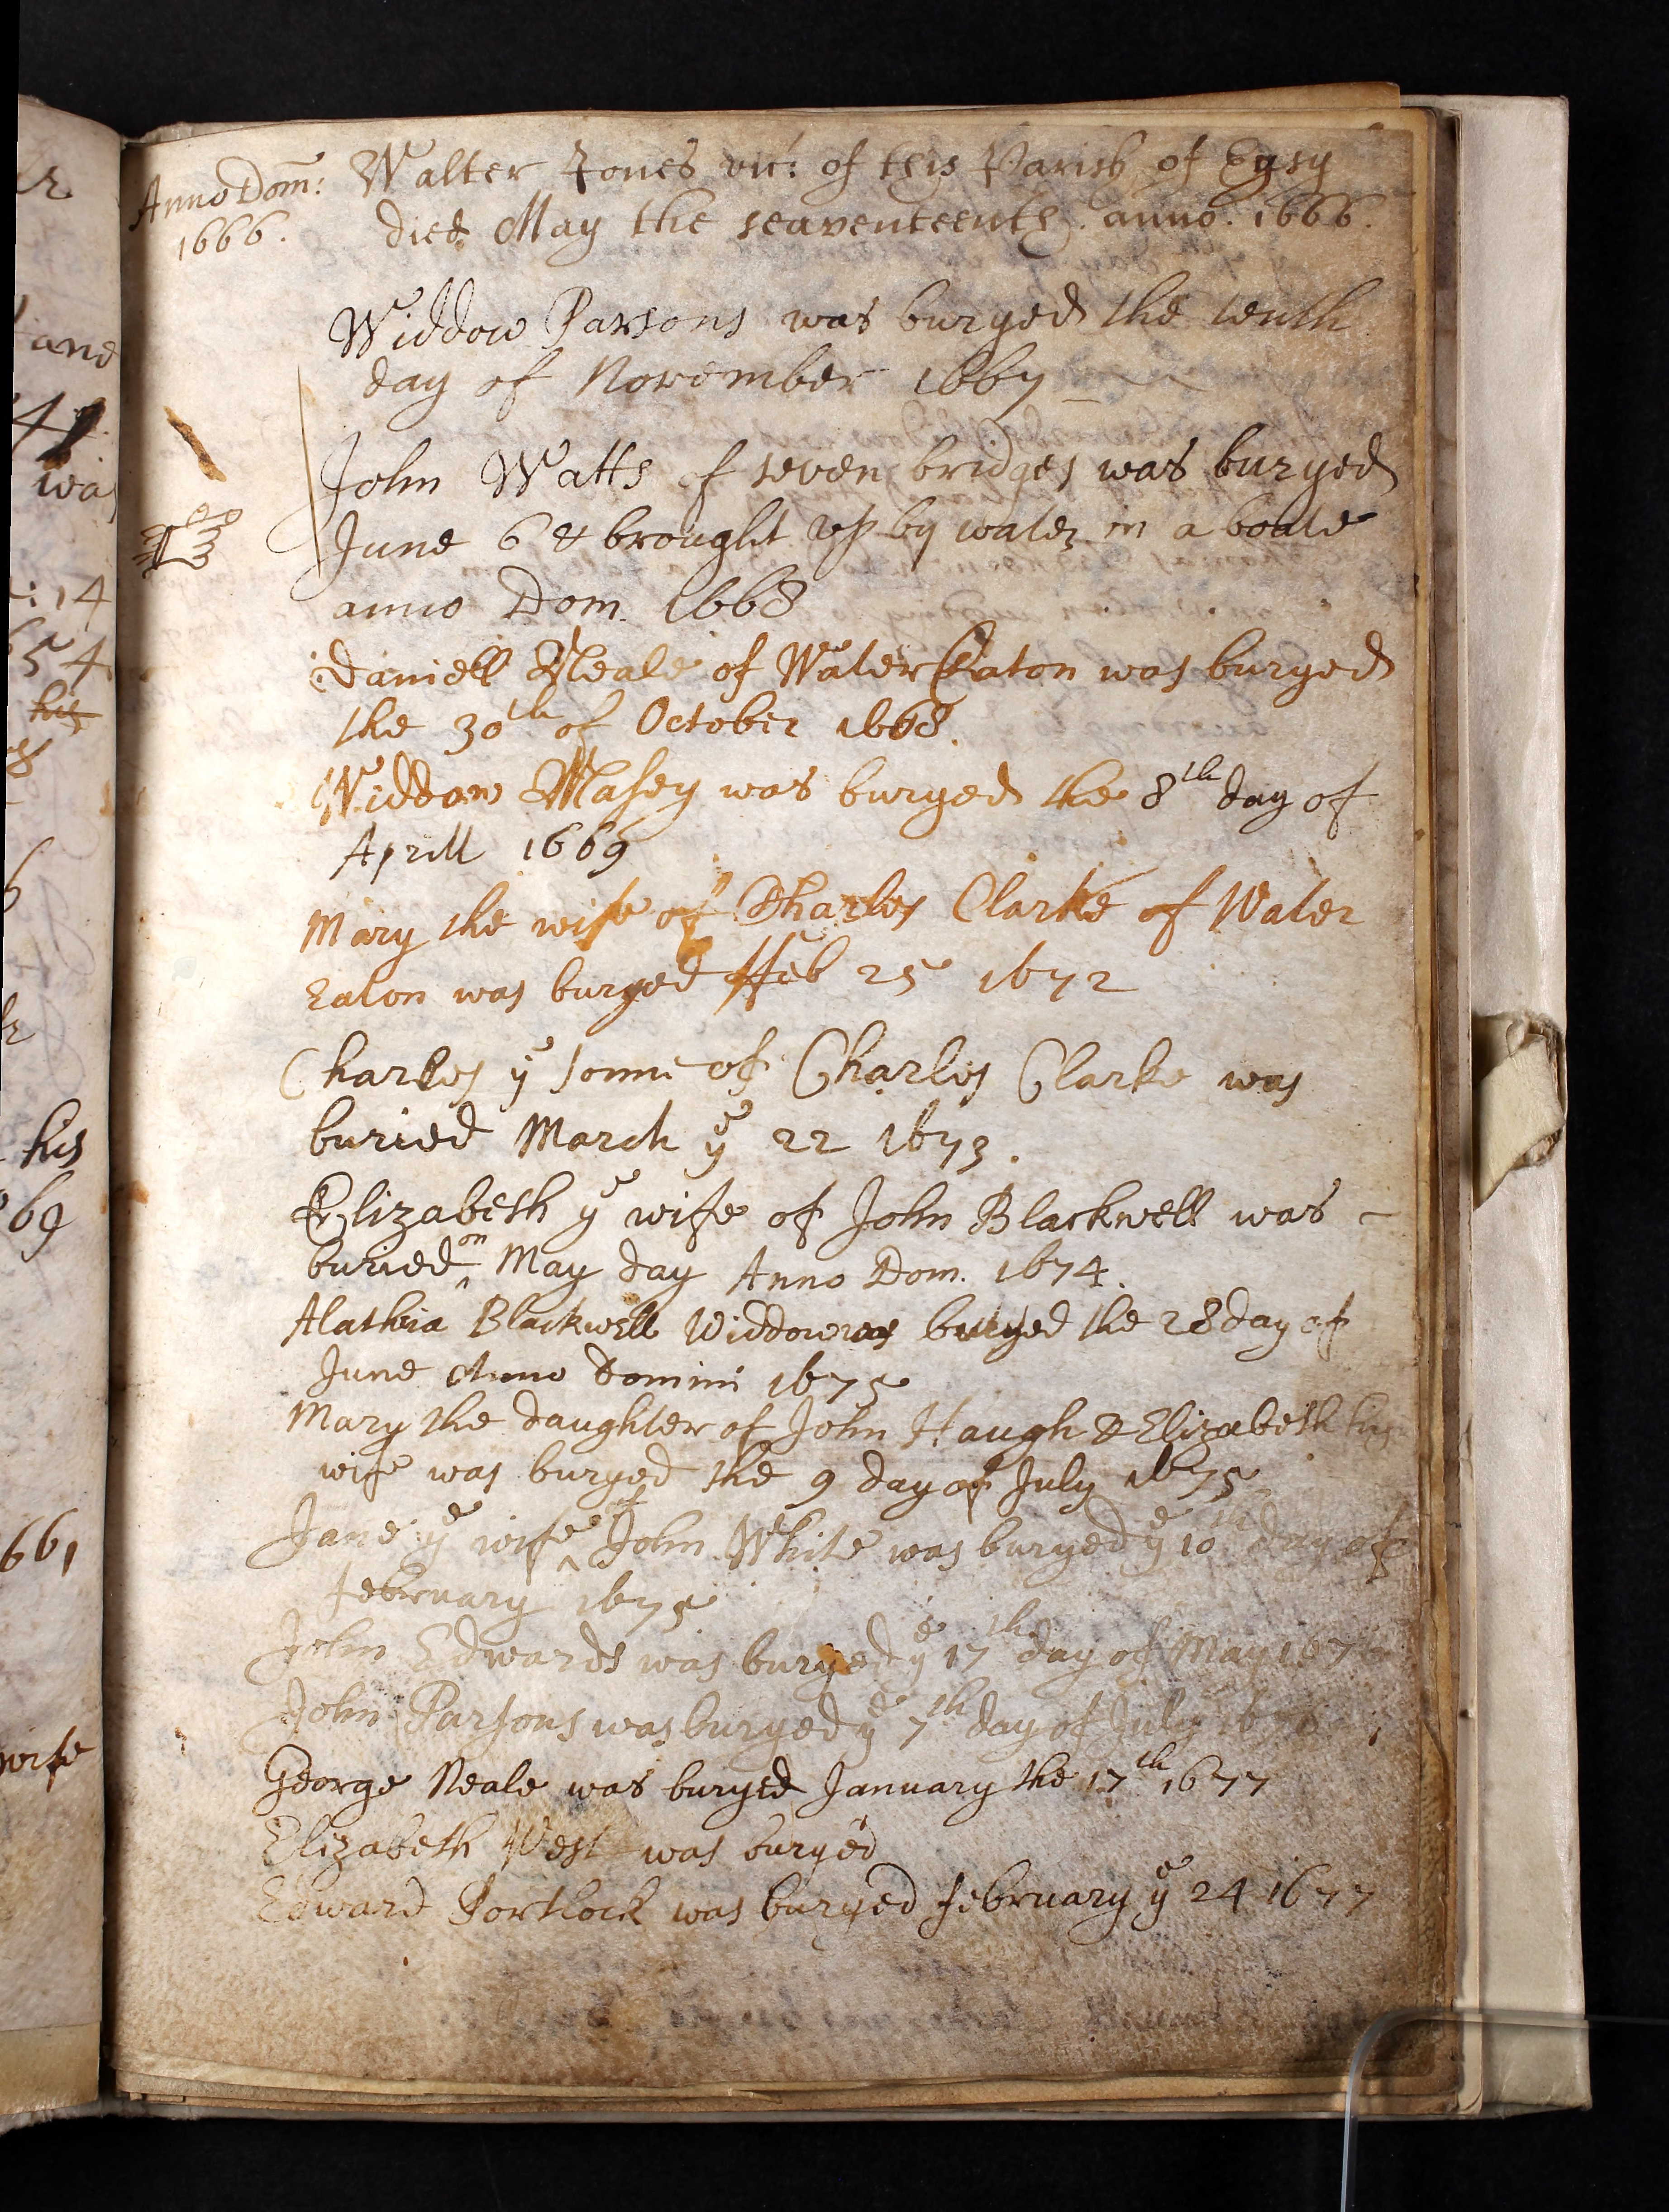 Anno Dom: Walter Jones vic: of this Parish of Eysy
1666. died May the seaventeenth. anno. 1666.
Widdow Parsons was buryed the tenth
day of November 1667
John Watts of seven bridges was buryed
June 6 & brought vp by water in a boate
anno Dom. 1668
Daniell Neale of Water Eaton was buryed
the 30th of October 1668.
Widdow Masey was buryed the 8th day of
Aprill 1669
Mary the wife of Charles Clarke of Water
Eaton was buryed ffeb 25 1672
Charles ye sonne of Charles Clarke was
buried March ye 22 1673.
Elizabeth ye wife of John Blackwell was
buried on May day Anno Dom. 1674.
Alathia Blackwell Widdow was buryed the 28 day of
June Anno Domini 1675
Mary the daughter of John Haugh & Elizabeth his
wife was buryed the 9 day of July 1675
Jane ye wife of John White was buryed ye 10th day of
february 1675
John Edwards was buryed ye 17th day of May 167
John Parsons was buryed ye 7th day of July 1676
George Neale was buryed January the 17th 1677
Elizabeth West was buryed
Edward Portlock was buryed february ye 24 1677